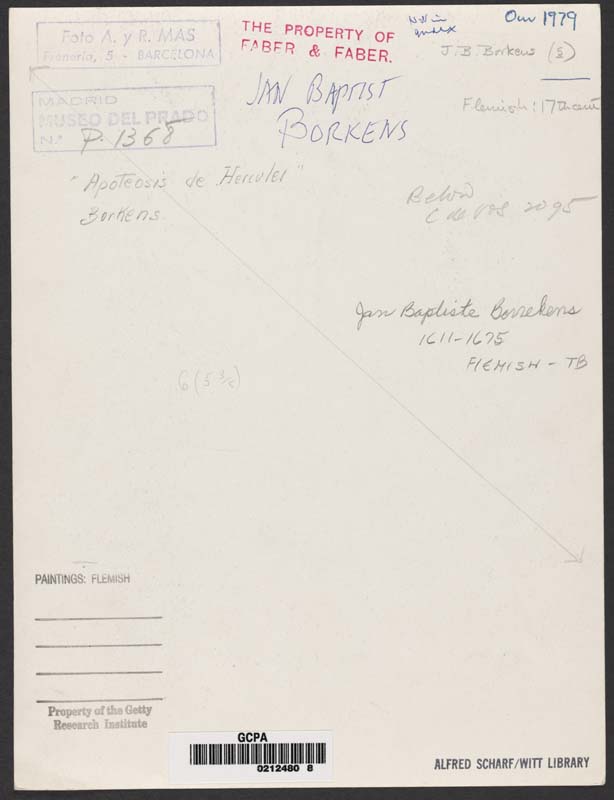 Foto A. y R. MAS
Freneria, 5 - BARCELONA
THE PROPERTY OF
FABER & FABER.
Our 1979
J. B. Borkens (s)
MADRID
MUSEO DEL PRADO
N.º P. 1368
JAN BAPTIST
BORKENS
Flemish: 17th cent
"Apoteosis de Hercules"
Borkens.
Below
C de Vos 2095
Jan Baptiste Borrekens
1611-1675
FLEMISH - TB
6 (5 3/8)
PAINTINGS: FLEMISH
Property of the Getty
Research Institute
GCPA
0212480 8
ALFRED SCHARF/WITT LIBRARY